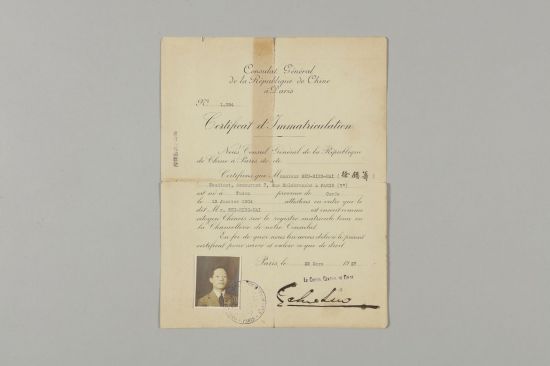 Consulat Général
de la République de Chine
à Paris
N° 1,394
Certificat d'Immatriculation
Nous Consul Général de la République
de Chine à Paris etc. etc.
Certifions que Monsieur HSU-MING-HAI (徐
Etudiant, demeurant 7, Rue à PARIS (5°)
est né à province de
le 12 Janvier 1904 attestons en outre que le
dit Mr. HSU-MING-HAI est inscrit comme
citoyen Chinois sur le registre matricule tenu en
la Chancellerie de notre Consulat.
En foi de quoi nous lui avons délivré le présent
certificat pour servir et valoir ce que de droit.
Paris, le 22 Mars
Le Consul Général de Chine